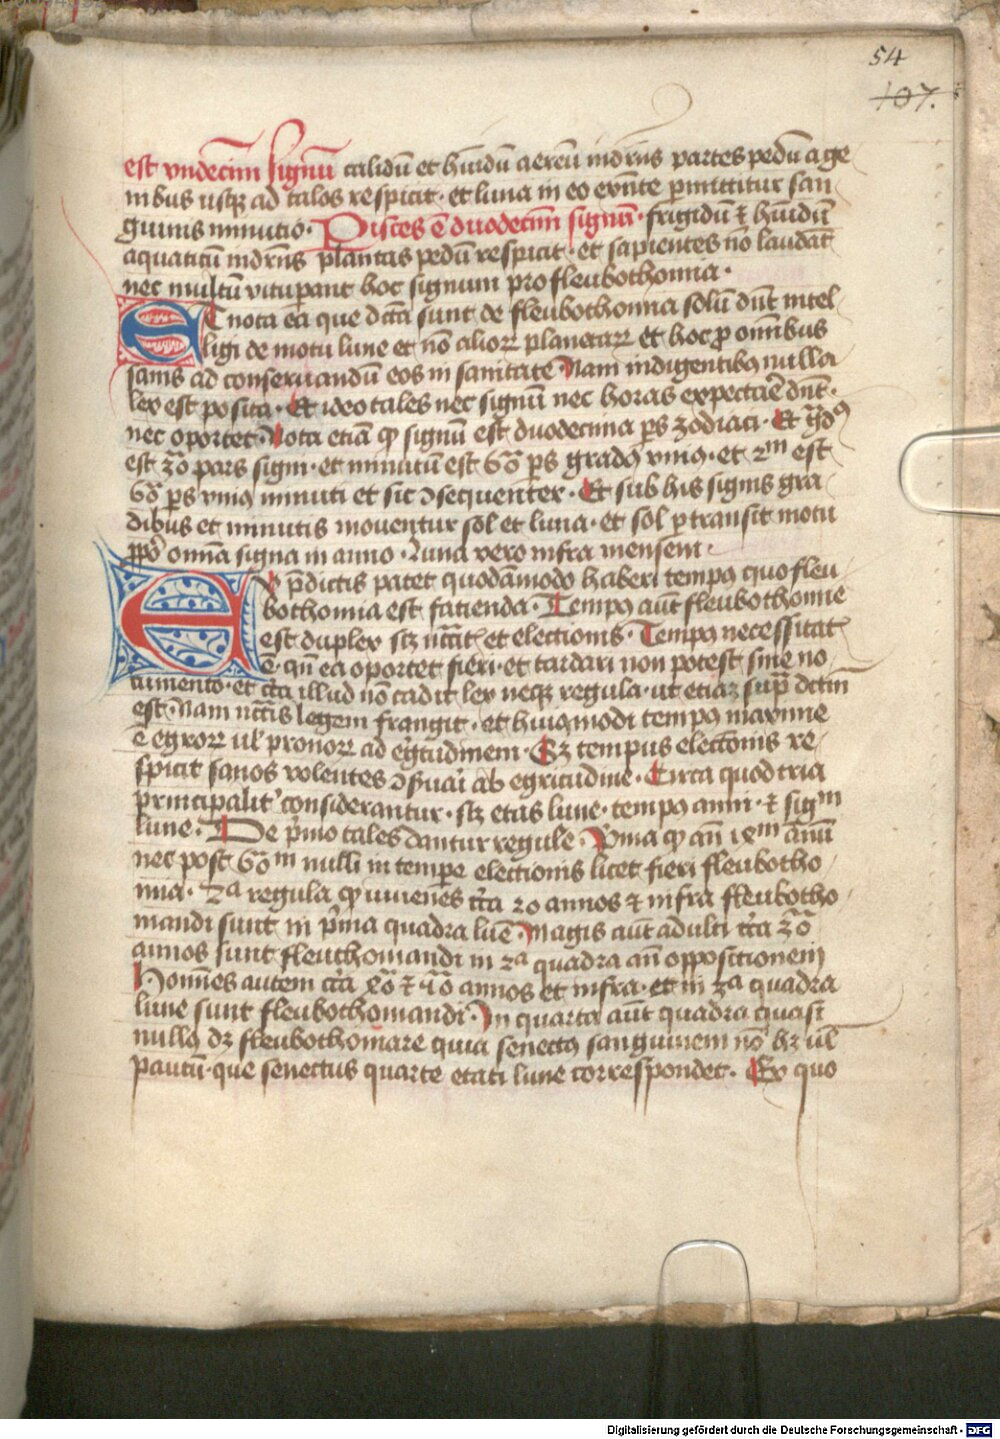 54
107.
est vndecim̄ signū calidū et hūidū aereū mdr̄ns partes pedū a ge
nibus usq; ad talos respicit · et luna in eo exn̄te p̲mittitur san
guinis minutio · Pisces ē duodecim̄ signū · frigidū ⁊ hūidū
aquaticū mdr̄ns plantas pedū respicit · et sapientes nō laudāt
nec multū vitup̲ant hoc signum pro fleubothomia ·
ET nota ea que dc̄ta sunt de fleubothomia solū dn̄t intel
ligi de motu lune et nō alioꝝ planetaꝝ et hoc ꝓ omībus
sanis ad conseruandū eos in sanitate Nam indigentibꝯ nulla
lex est posita · Et ideo tales nec signū nec horas expectar̄e dn̄t ·
nec oportet · Nota etiā ꝙ signū est duodecima ps̄ zodiaci · Et gͣdꝯ
est 30̄ pars signi · et minutū est 60̄ ps̄ gradꝯ vniꝯ · et 2ᵐ est
60̄ ps̄ vniꝯ minuti et sic ꝯsequenter · Et sub his signis gra
dibus et minutis mouentur sol et luna · et sol p̲transit motu
ꝓpͦ omn̄ia signa in anno · Luna vero infra mensem ·
EX p̄dictis patet quodāmodo haberi tempꝯ quo fleu
bothomia est facienda · Tempꝯ aūt fleubothomie
est duplex sꝫ nc̄cītatꝭ et electionis · Tempꝯ necessitatꝭ
ē · qn̄ ea oportet fieri · et tardari non potest sine no
cumento · et cͨa illud nō cadit lex neqꝫ regula · ut etiaꝫ supͣ dc̄tm
est · Nam nc̄cīs legem frangit · et huiꝯmodi tempꝯ maxime
ē egroꝝ ul' pronoꝝ ad egͥtudinem · Sꝫ tempus elecc̄onis re
spicit sanos volentes ꝯs̄uari ab egritudine · Circa quod tria
principalit' considerantur · sꝫ etas lune · tempꝯ anni · ⁊ sigᵐ
lune · De pͥmo tales dantur regule · Pͥma ꝙ an̄ 18ᵐ annū
nec post 60̄ᵐ nulli in tempe electionis licet fieri fleubotho
mia · 2ᵃ regula ꝙ iuuenes cͨa 20 annos ⁊ infra fleubotho
mandi sunt in pͥma quadra lun̄e · Magis aūt adulti cͨa 30̄
annos sunt fleuthomandi in 2ᵃ quadra an̄ oppositionem
Homīes autem cͨa annos et infra · et in 3ᵃ quadra
lune sunt fleubothomandi · In quarta aūt quadra quasi
nullꝯ dꝫ fleubothomare quia senectꝯ sanguinem nō hꝫ ul'
paucū · que senectus quarte etati lune correspondet · Ex quo
Digitalisierung gefördert durch die Deutsche Forschungsgemeinschaft - DFG